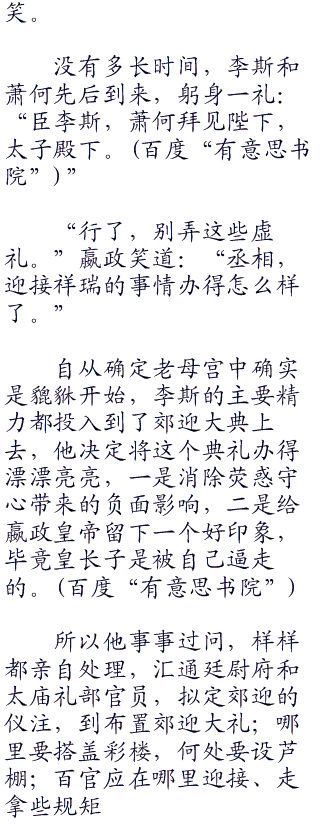 笑。
没有多长时间，李斯和
萧何先后到来，躬身一礼：
“臣李斯，萧何拜见陛下，
太子殿下。(百度“有意思书
院”)”
“行了，别弄这些虚
礼。”嬴政笑道：“丞相，
迎接祥瑞的事情办得怎么样
了。”
自从确定老母宫中确实
是貔貅开始，李斯的主要精
力都投入到了郊迎大典上
去，他决定将这个典礼办得
漂漂亮亮，一是消除荧惑守
心带来的负面影响，二是给
嬴政皇帝留下一个好印象，
毕竟皇长子是被自己逼走
的。(百度“有意思书院”)
所以他事事过问，样样
都亲自处理，汇通廷尉府和
太庙礼部官员，拟定郊迎的
仪注，到布置郊迎大礼；哪
里要搭盖彩楼，何处要设芦
棚；百官应在哪里迎接、走
拿些规矩